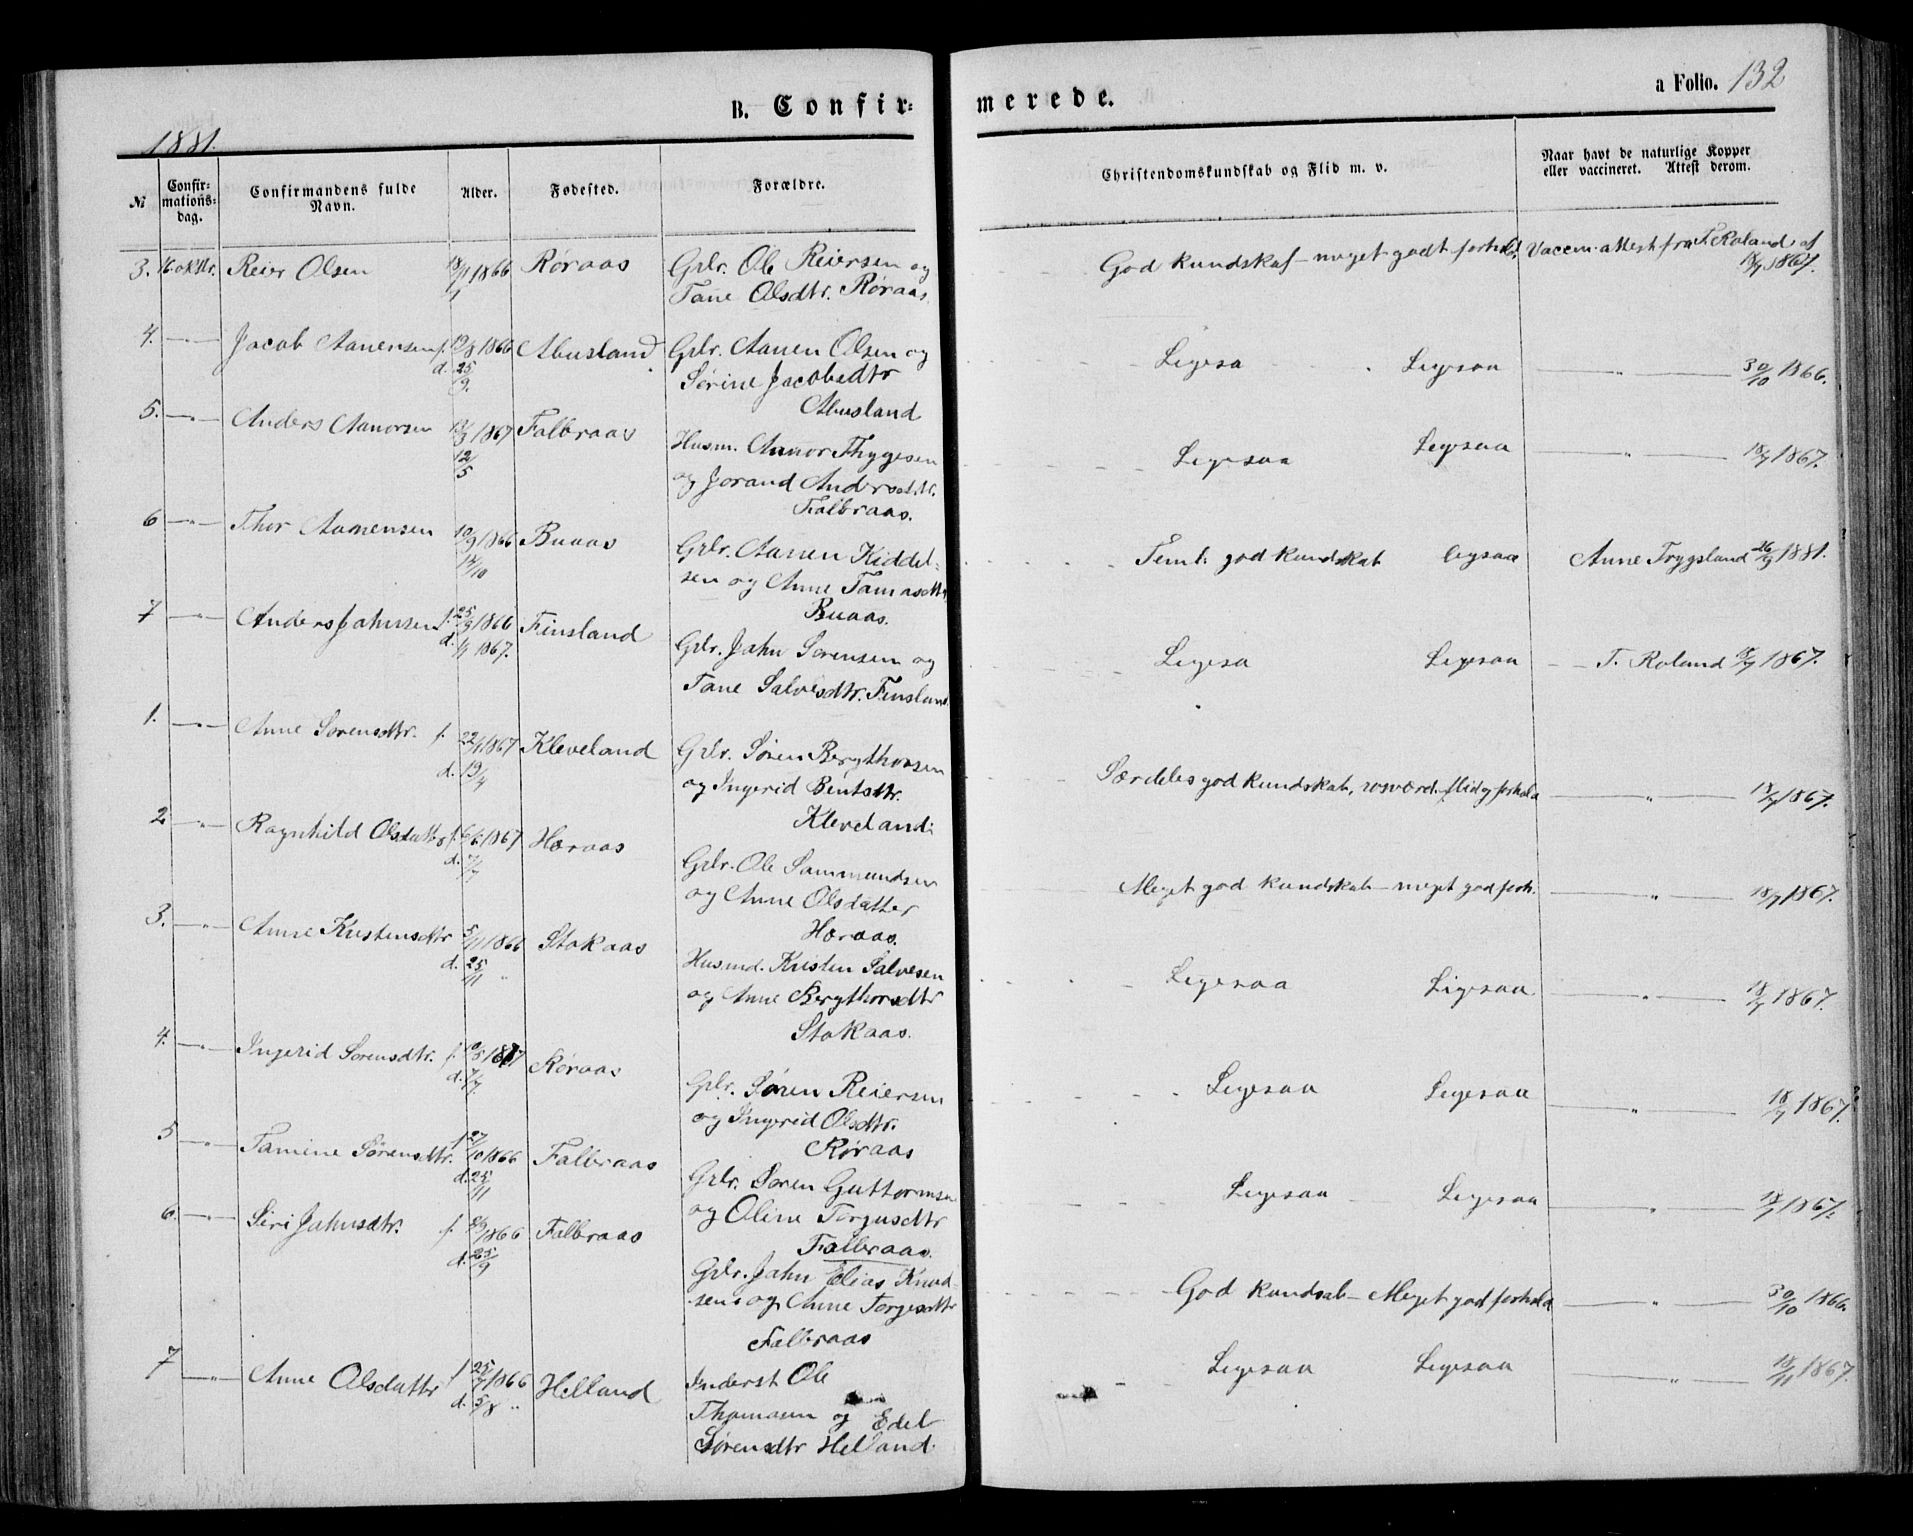 B. Confir-
merede.
a Folio. 132
1881.
№
Confir-
mations-
dag.
Confirmandens fulde
Navn.
Alder.
Fødested.
Forældre.
Christendomskundskab og Flid m. v.
Naar havt de naturlige Kopper
eller vaccineret. Attest derom.
3. 16 oktbr. Reier Olsen 1866 Røraas Gdr. Ole Reiersen og God kundskab - meget godt forhold. Vaccin. attest fra T. Roland af
Tane Olsdtr. Røraas. 18/7 1867.
4. —"— Jacob Aanensen f. 19/8 1866 Abusland Gdr. Aanen Olsen og Ligesa Ligesaa —"— 30/10 1866.
d. 25/9. Sørine Jacobsdtr
Abusland
5. —"— Anders Aanorsen 13/3 1867 Falbraas Husm. Aanor Thygesen Ligesaa Ligesaa —"— 18/7 1867.
12/5 og Jorand Andersdtr.
Falbraas.
6 —"— Thor Aanensen 10/9 1866 Buaas Gdr. Aanen Kiddel- Teml. god kundskab ligsaa Anne Trygsland 26/9 1881.
14/10 sen og Anne Tamasdtr
Buaas.
7 —"— Anders Jahnsen f. 25/9 1866 Finsland Gdr. Jahn Sørensen og Ligesa Ligesaa — T. Roland 18/7 1867.
d. 1/1 1867. Tane Salvesdtr. Finsland
1. —"— Anne Sørensdtr. f. 22/1 1867 Kleveland Gdr. Søren Bergthorsen Særdeles god kundskab, rosværd. flid og forhold —"— 18/7 1867.
d. 19/4 og Ingerid Bentsdtr.
Kleveland.
2 —"— Ragnhild Olsdatter f. 6/6 1867 Høraas Gdr. Ole Sammundsen Meget god kundskab - meget god forh. —"— 18/7 1867.
d. 7/7 og Anne Olsdatter
Høraas.
3. —"— Anne Kristensdtr 5/11 1866 Stokaas Husmd. Kristen Salvesen Ligesaa Ligesaa —"— 18/7 1867.
d. 25/11 " og Anne Bergthorsdtr
Stokaas.
4. —"— Ingerid Sørensdtr. f. 10/5 1867 Røraas Gdr. Søren Reiersen Ligesaa Ligesaa —"— 18/7 1867.
d. 7/7. og Ingerid Olsdtr.
Røraas
5 —"— Tamine Sørensdtr. f 27/10 1866 Falbraas Gdr. Søren Guttormsen Ligesaa Ligesaa —"— 18/7 1867.
d. 25/11 og Oline Torjusdtr
Falbraas.
6. —"— Siri Jahnsdtr. f. 1866 Falbraas Gdr. Jahn Elias Knud- God kundsab - Meget god forhold —"— 30/10 1866
d. 25/9 sen og Anne Torgesdtr
Falbraas
7 —"— Anne Olsdatter f 25/7 1866 Helland Inderst Ole Ligesaa Ligesaa —"— 18/11 1867.
d. 5/8 " Thomasen og Edel
Sørensdtr Helland.